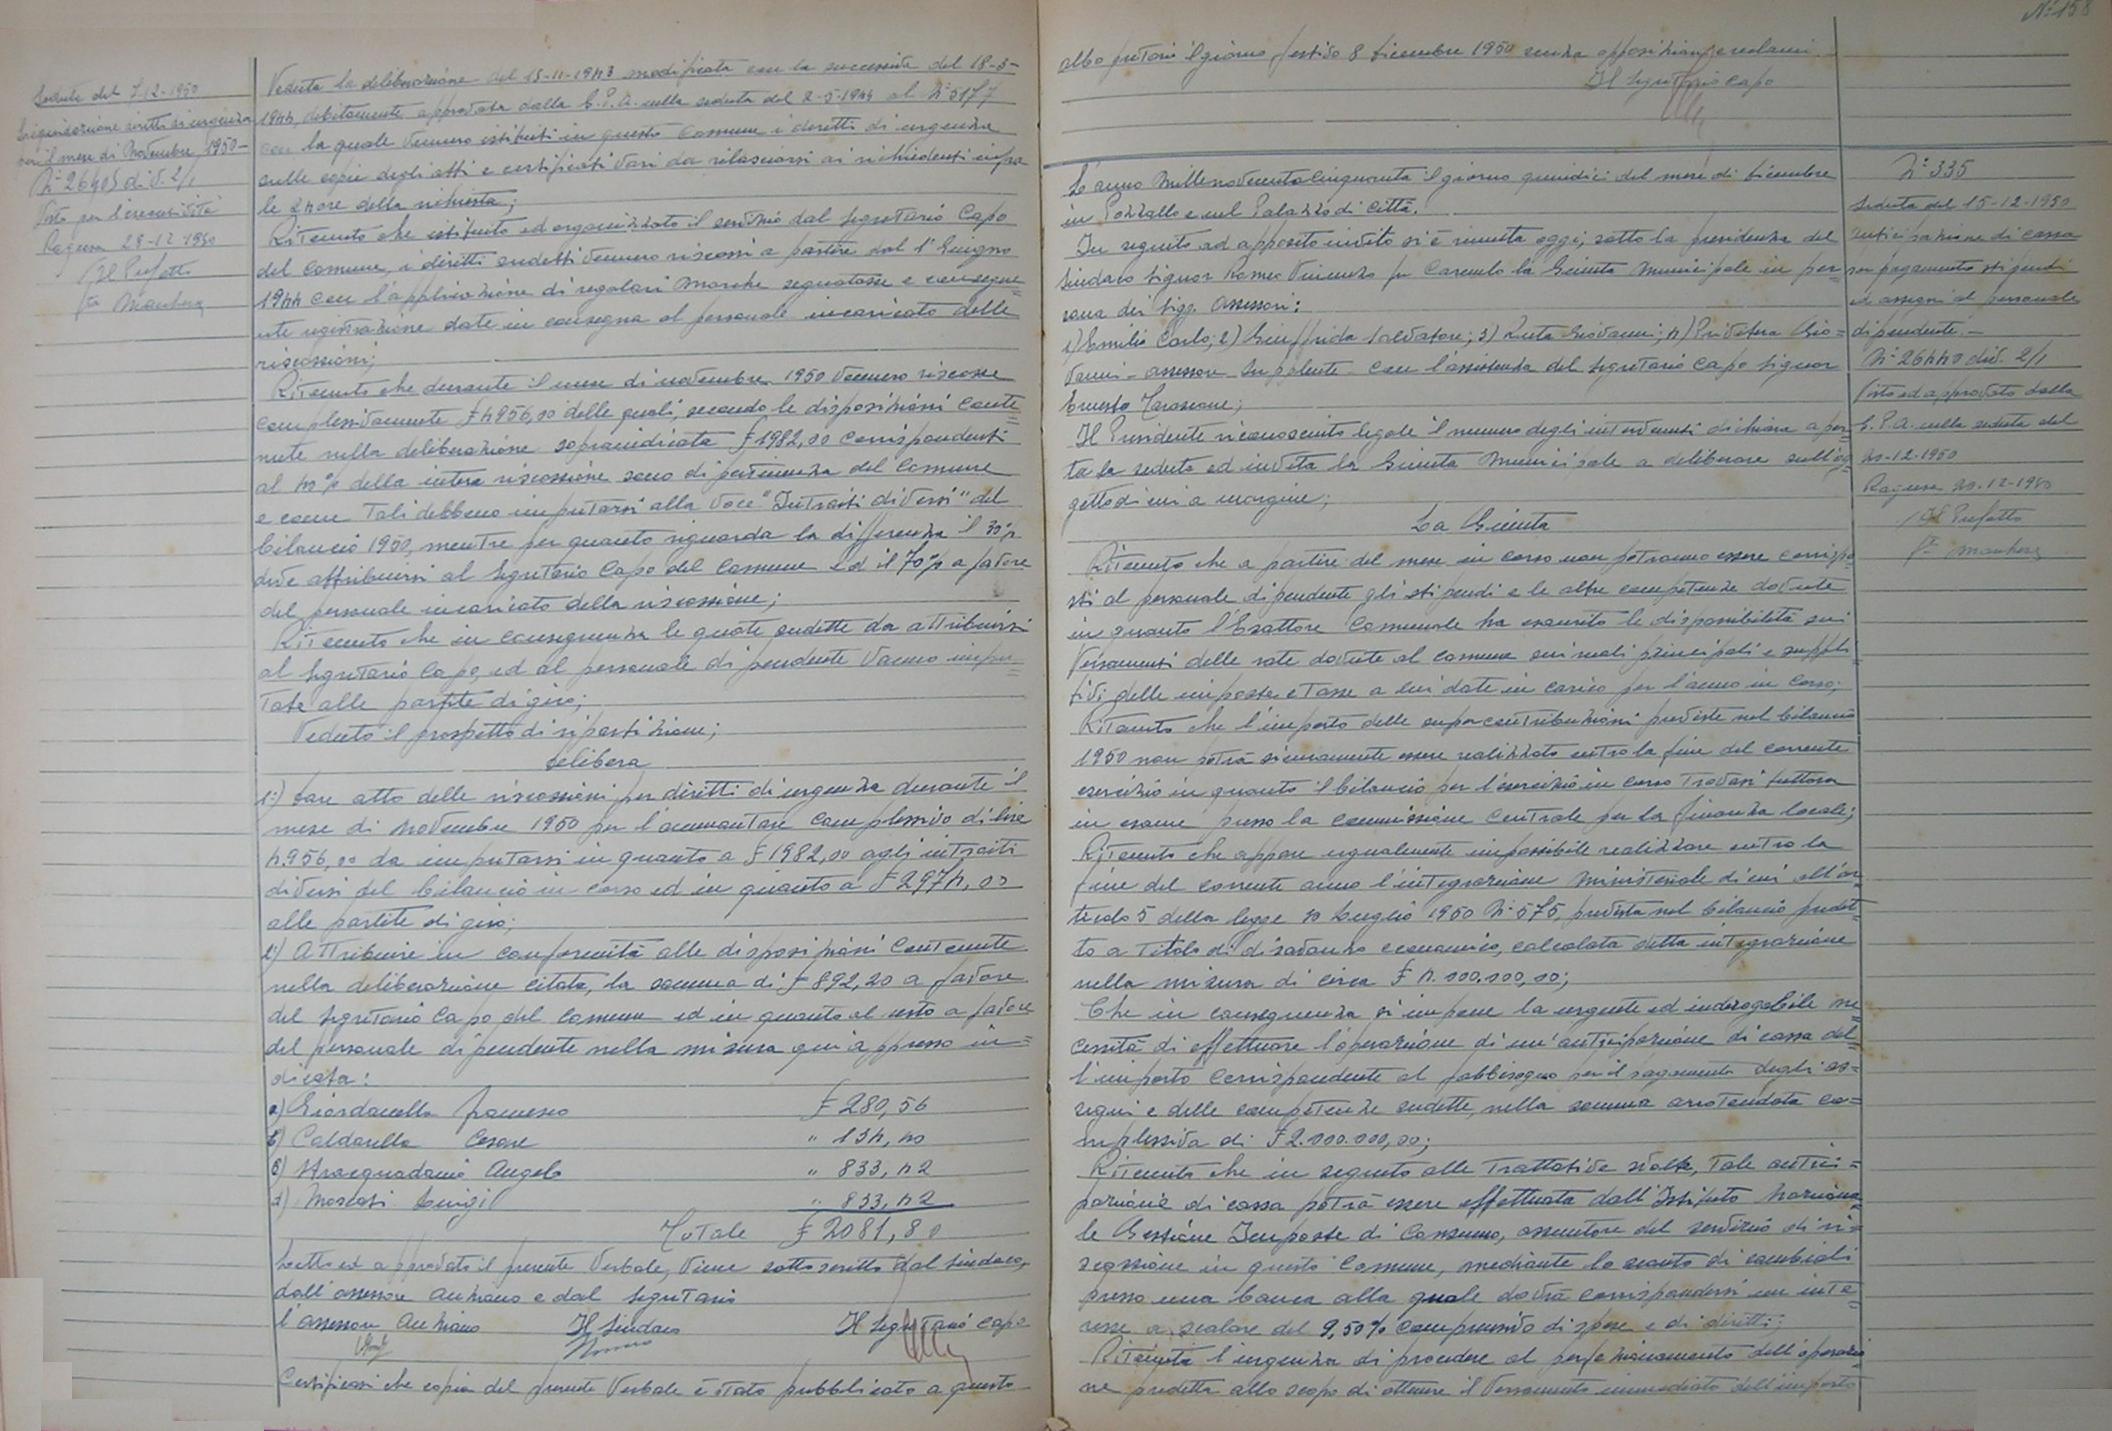 Seduta del 7-12-1950
Liquidazione diritti di urgenza
per il mese di Novembre 1950-
N° 26405 div. 2/1
Visto per l'esecutività
Ragusa 28-12-1950
Il Prefetto
Veduta la deliberazione del 15-11-1943 modificata con la successiva del 18-3-
1944, debitamente approvata dalla G.P.A. nella seduta del 2-5-1944 al N° 5177
con la quale vennero istituiti in questo Comune i diritti di urgenza
sulle copie degli atti e certificati vari da rilasciarsi ai richiedenti infra
le 24 ore della richiesta;
Ritenuto che istituito ed organizzato il servizio dal Segretario Capo
del Comune, i diritti suddetti vennero riscossi a partire dal 1° Giugno
1944 con l'applicazione di regolari marche segnatasse e consegue=
nte registrazione date in consegna al personale incaricato delle
riscossioni;
Ritenuto che durante il mese di novembre 1950 vennero riscosse
complessivamente £ 4956,00 delle quali, secondo le disposizioni conte=
nute nella deliberazione sopraindicata £ 1982,00 corrispondenti
al 40% della intera riscossione sono di pertinenza del Comune
e come tali debbono imputarsi alla voce "Introiti diversi" del
bilancio 1950, mentre per quanto riguarda la differenza il 30%
deve attribuirsi al Segretario Capo del Comune ed il 70% a favore
del personale incaricato della riscossione;
Ritenuto che in conseguenza le quote suddette da attribuirsi
al Segretario Capo, ed al personale dipendente vanno impu=
tate alle partite di giro;
Veduto il prospetto di ripartizione;
Delibera
1°) Dare atto delle riscossioni per diritti di urgenza durante il
mese di Novembre 1950 per l'ammontare complessivo di lire
4.956,00 da imputarsi in quanto a £ 1982,00 agli introiti
diversi del bilancio in corso ed in quanto a £ 2974,00
alle partite di giro;
2°) Attribuire in conformità alle disposizioni contenute
nella deliberazione citata, la somma di £ 892,20 a favore
del Segretario Capo del Comune ed in quanto al resto a favore
del personale dipendente nella misura qui appresso in=
dicata:
a) Giordanella Francesco £ 280,56
b) Caldarella Cesare " 134,40
c) Stracquadanio Angelo " 833,42
d) Moscati Luigi " 833,42
Totale £ 2081,80
Letto ed approvato il presente Verbale, viene sottoscritto dal Sindaco,
dall'assessore anziano e dal Segretario
L'assessore Anziano Il Sindaco Il Segretario Capo
Certificasi che copia del presente Verbale è stato pubblicato a questo
N° 158
albo pretorio il giorno festivo 8 Dicembre 1950 senza opposizioni e reclami.
Il Segretario Capo
L'anno Millenovecentocinquanta il giorno quindici del mese di Dicembre
in Pozzallo e nel Palazzo di Città.
In seguito ad apposito invito si è riunita oggi, sotto la presidenza del
Sindaco Signor Romeo Vincenzo fu Carmelo la Giunta Municipale in per=
sona dei Sigg. Assessori:
1) Emilio Carlo; 2) Giuffrida Salvatore; 3) Ruta Giovanni; 4) Privitera Gio=
vanni - assessore Supplente - con l'assistenza del Segretario Capo Signor
Ernesto
Il Presidente riconosciuto legale il numero degli intervenuti dichiara aper=
ta la seduta ed invita la Giunta Municipale a deliberare sull'og=
getto di cui a margine;
La Giunta
Ritenuto che a partire del mese in corso non potranno essere corrispo=
sti al personale dipendente gli stipendi e le altre competenze dovute
in quanto l'Esattore Comunale ha esaurito le disponibilità sui
versamenti delle rate dovute al Comune sui ruoli principali e supple=
tivi delle imposte e Tasse a lui date in carico per l'anno in corso;
Ritenuto che l'importo delle supercontribuzioni previste nel bilancio
1950 non potrà sicuramente essere realizzato entro la fine del corrente
esercizio in quanto il bilancio per l'esercizio in corso trovasi tuttora
in esame presso la Commissione Centrale per la finanza locale;
Ritenuto che appare ugualmente impossibile realizzare entro la
fine del corrente anno l'integrazione ministeriale di cui all'ar=
ticolo 5 della legge 30 Luglio 1950 N° 575, prevista nel bilancio predet=
to a titolo di disavanzo economico, calcolata detta integrazione
nella misura di circa £ 4.000.000,00;
Che in conseguenza si impone la urgente ed inderogabile ne=
cessità di effettuare l'operazione di un'anticipazione di cassa del=
l'importo corrispondente al fabbisogno per il pagamento degli as=
segni e delle competenze suddette, nella somma arrotondata co=
mplessiva di £ 2.000.000,00;
Ritenuto che in seguito alle trattative svolte, tale antici=
pazione di cassa potrà essere effettuata dall'Istituto Naziona=
le Gestione Imposte di Consumo, assuntore del servizio di ri=
scossione in questo Comune, mediante lo sconto di cambiali
presso una banca alla quale dovrà corrispondersi un inte=
resse a scalare del 9,50% comprensivo di spese e di diritti;
Ritenuta l'urgenza di procedere al perfezionamento dell'operazio=
ne predetta allo scopo di ottenere il versamento immediato dell'importo
N° 335
Seduta del 15-12-1950
Anticipazione di cassa
per pagamento stipendi
ed assegni al personale
dipendente.-
N° 26440 div. 2/1
Visto ed approvato dalla
G.P.A. nella seduta del
Il Prefetto